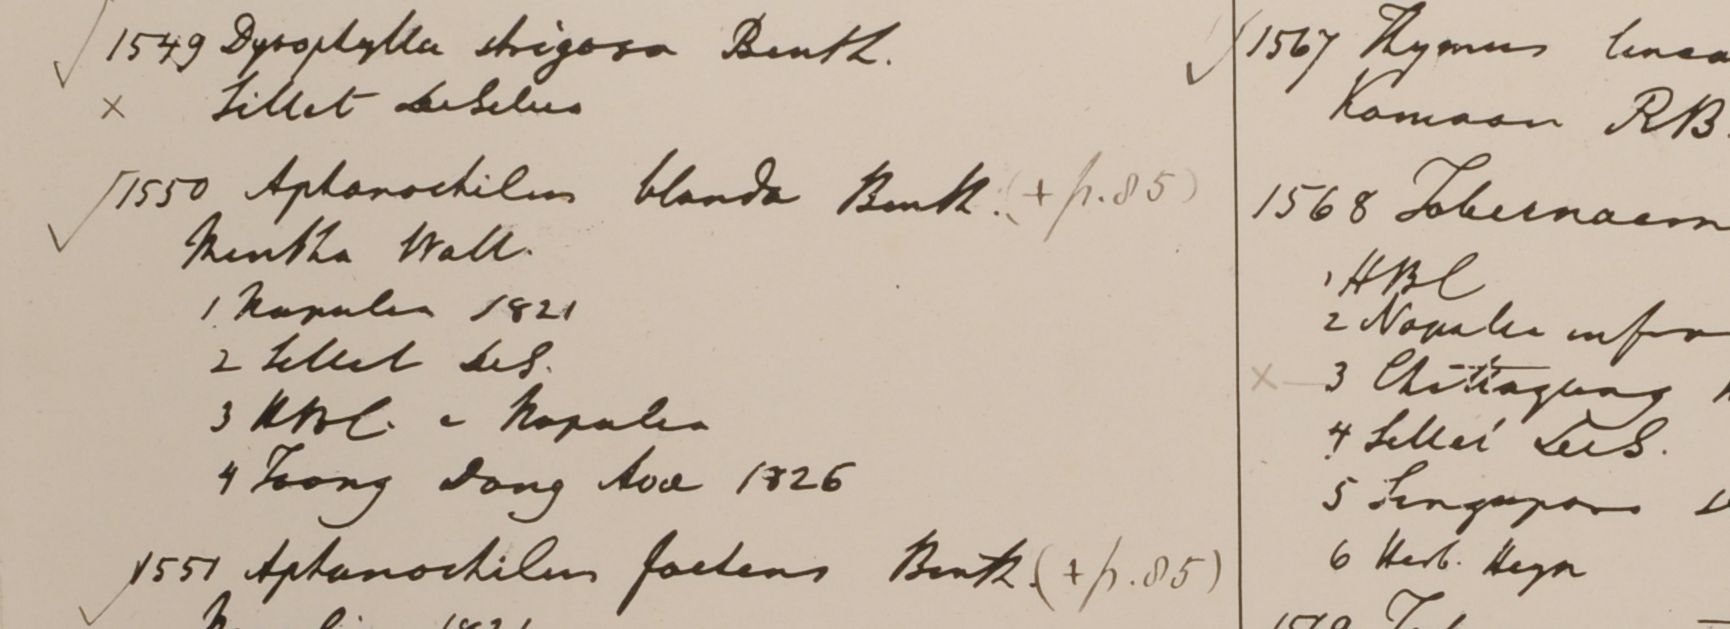 1549 Dysophylla strigosa Benth.
× Sillet
1550 Aphanochilus blanda Benth. (+ p. 85)
Mentha Wall.
1 Napalia 1821
2 Sillet DeS.
3 HBC. e Napalia
4 Toong Dong Ava 1826
1551 Aphanochilus foetens Benth. (+ p. 85)
1821
1567 Thymus
Kamaon RB.
1568
1 HBC
2 Napalia
× 3 Chittagong
4 Sillet DeS.
5 Singapore
6 Herb. Heyn
1569